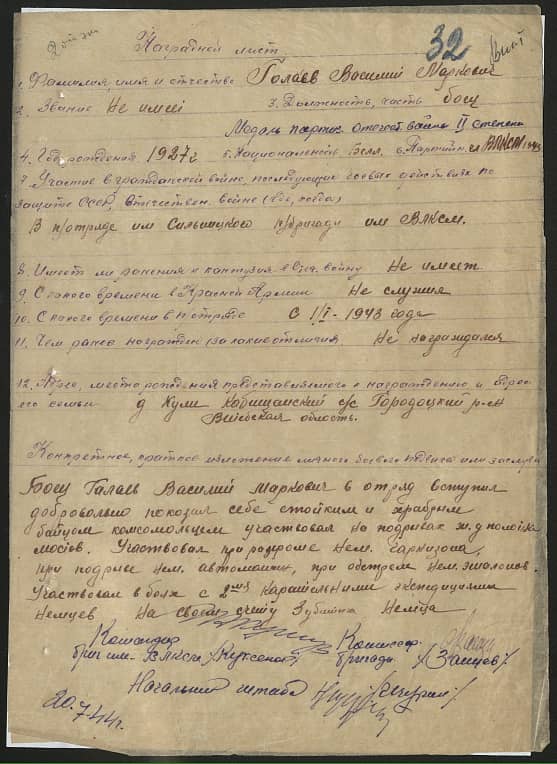 32
Наградной лист
1. Фамилия, имя и отчество Голаев Василий Маркович
2. Звание Не имеі 3. Должность, часть боец
Медаль партиз. отечест. войны II степени
4. Год рождения 1927 г 5. Национальность Белл. 6. Партийн. чл ВЛКСМ
7. Участие в гражданской войне, последующих боевых действиях по
защите СССР, отечествен. войне (где, когда)
В п/отряде им Сильницкого п/бригади им ВЛКСМ.
8. Имеет ли ранения и контузия в Отеч. войну Не имеет
9. С какого времени в Красной Армии Не служил
10. С какого времени в п отряде С 1/I - 1943 года
11. Чем ранее награжден (за какие отличия Не награждался
12. место рождения представляемого к награждению и адрес
его семьи д Кули Кабищанский с/с Городоцкий р-он
Витебская область.
Конкретное, краткое изложение личного боевого подвига или заслуги
Боец Галаев Василий Маркович в отряд вступил
добровольно показал себе стойким и храбрым
байцом комсомольцем участвовал на подривах ж. д полотна
мостов. Участвовал при розгроме нем. гарнизона,
при подрыве нем. автомашин, при обстреле нем. эшалонов.
Участвовал в боях с 2мя карательними экспедициями
немцев На своем счету 3 убитих немца
Командир Комиссар
бриг им. ВЛКСМ бригади /Зайцев/
Начальник штаба
20.7.44г.